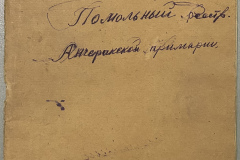 Помольный реестр.
Ангеракской примарии